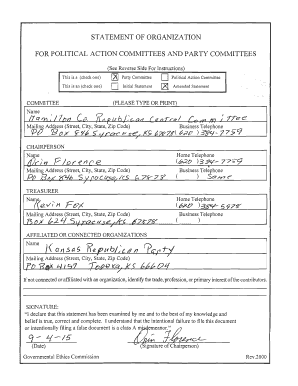 STATEMENT OF ORGANIZATION
FOR POLITICAL ACTION COMMITTEES AND PARTY COMMITTEES
(See Reverse Side For Instructions)
This is a (check one) X Party Committee Political Action Committee
This is an (check one) Initial Statement X Amended Statement
COMMITTEE (PLEASE TYPE OR PRINT)
Name
Hamilton Co. Republican Central Committee
Mailing Address (Street, City, State, Zip Code) Business Telephone
PO Box 846 Syracuse, KS 67878 (620) 384-7759
CHAIRPERSON
Name Home Telephone
Florence (620) 384-7759
Mailing Address (Street, City, State, Zip Code) Business Telephone
PO Box 846 Syracuse, KS 67878 ( ) Same
TREASURER
Name Home Telephone
Kevin Fox (620) 384-5978
Mailing Address (Street, City, State, Zip Code) Business Telephone
Box 624 Syracuse, KS 67878 ( )
AFFILIATED OR CONNECTED ORGANIZATIONS
Name
Kansas Republican Party
Mailing Address (Street, City, State, Zip Code)
PO Box 4157 Topeka, KS 66604
If not connected or affiliated with an organization, identify the trade, profession, or primary interest of the contributors.
SIGNATURE:
"I declare that this statement has been examined by me and to the best of my knowledge and
belief is true, correct and complete. I understand that the intentional failure to file this document
or intentionally filing a false document is a class A misdemeanor."
9-4-15 Florence
(Date) (Signature of Chairperson)
Governmental Ethics Commission Rev.2000